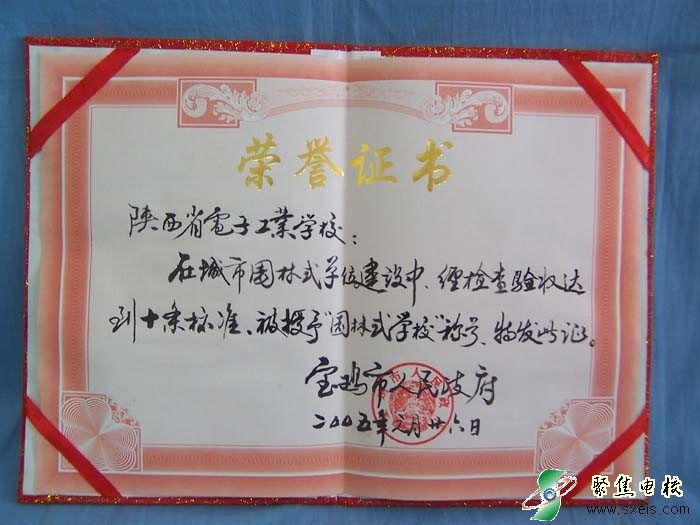 荣誉证书
陕西省電子工業学校：
在城市园林式单位建设中、經检查验收达
到十条标准、被授予"园林式学校"称号、特发此证。
宝鸡市人民政府
二00五年元月廿六日
聚焦电校
www.sxeis.com